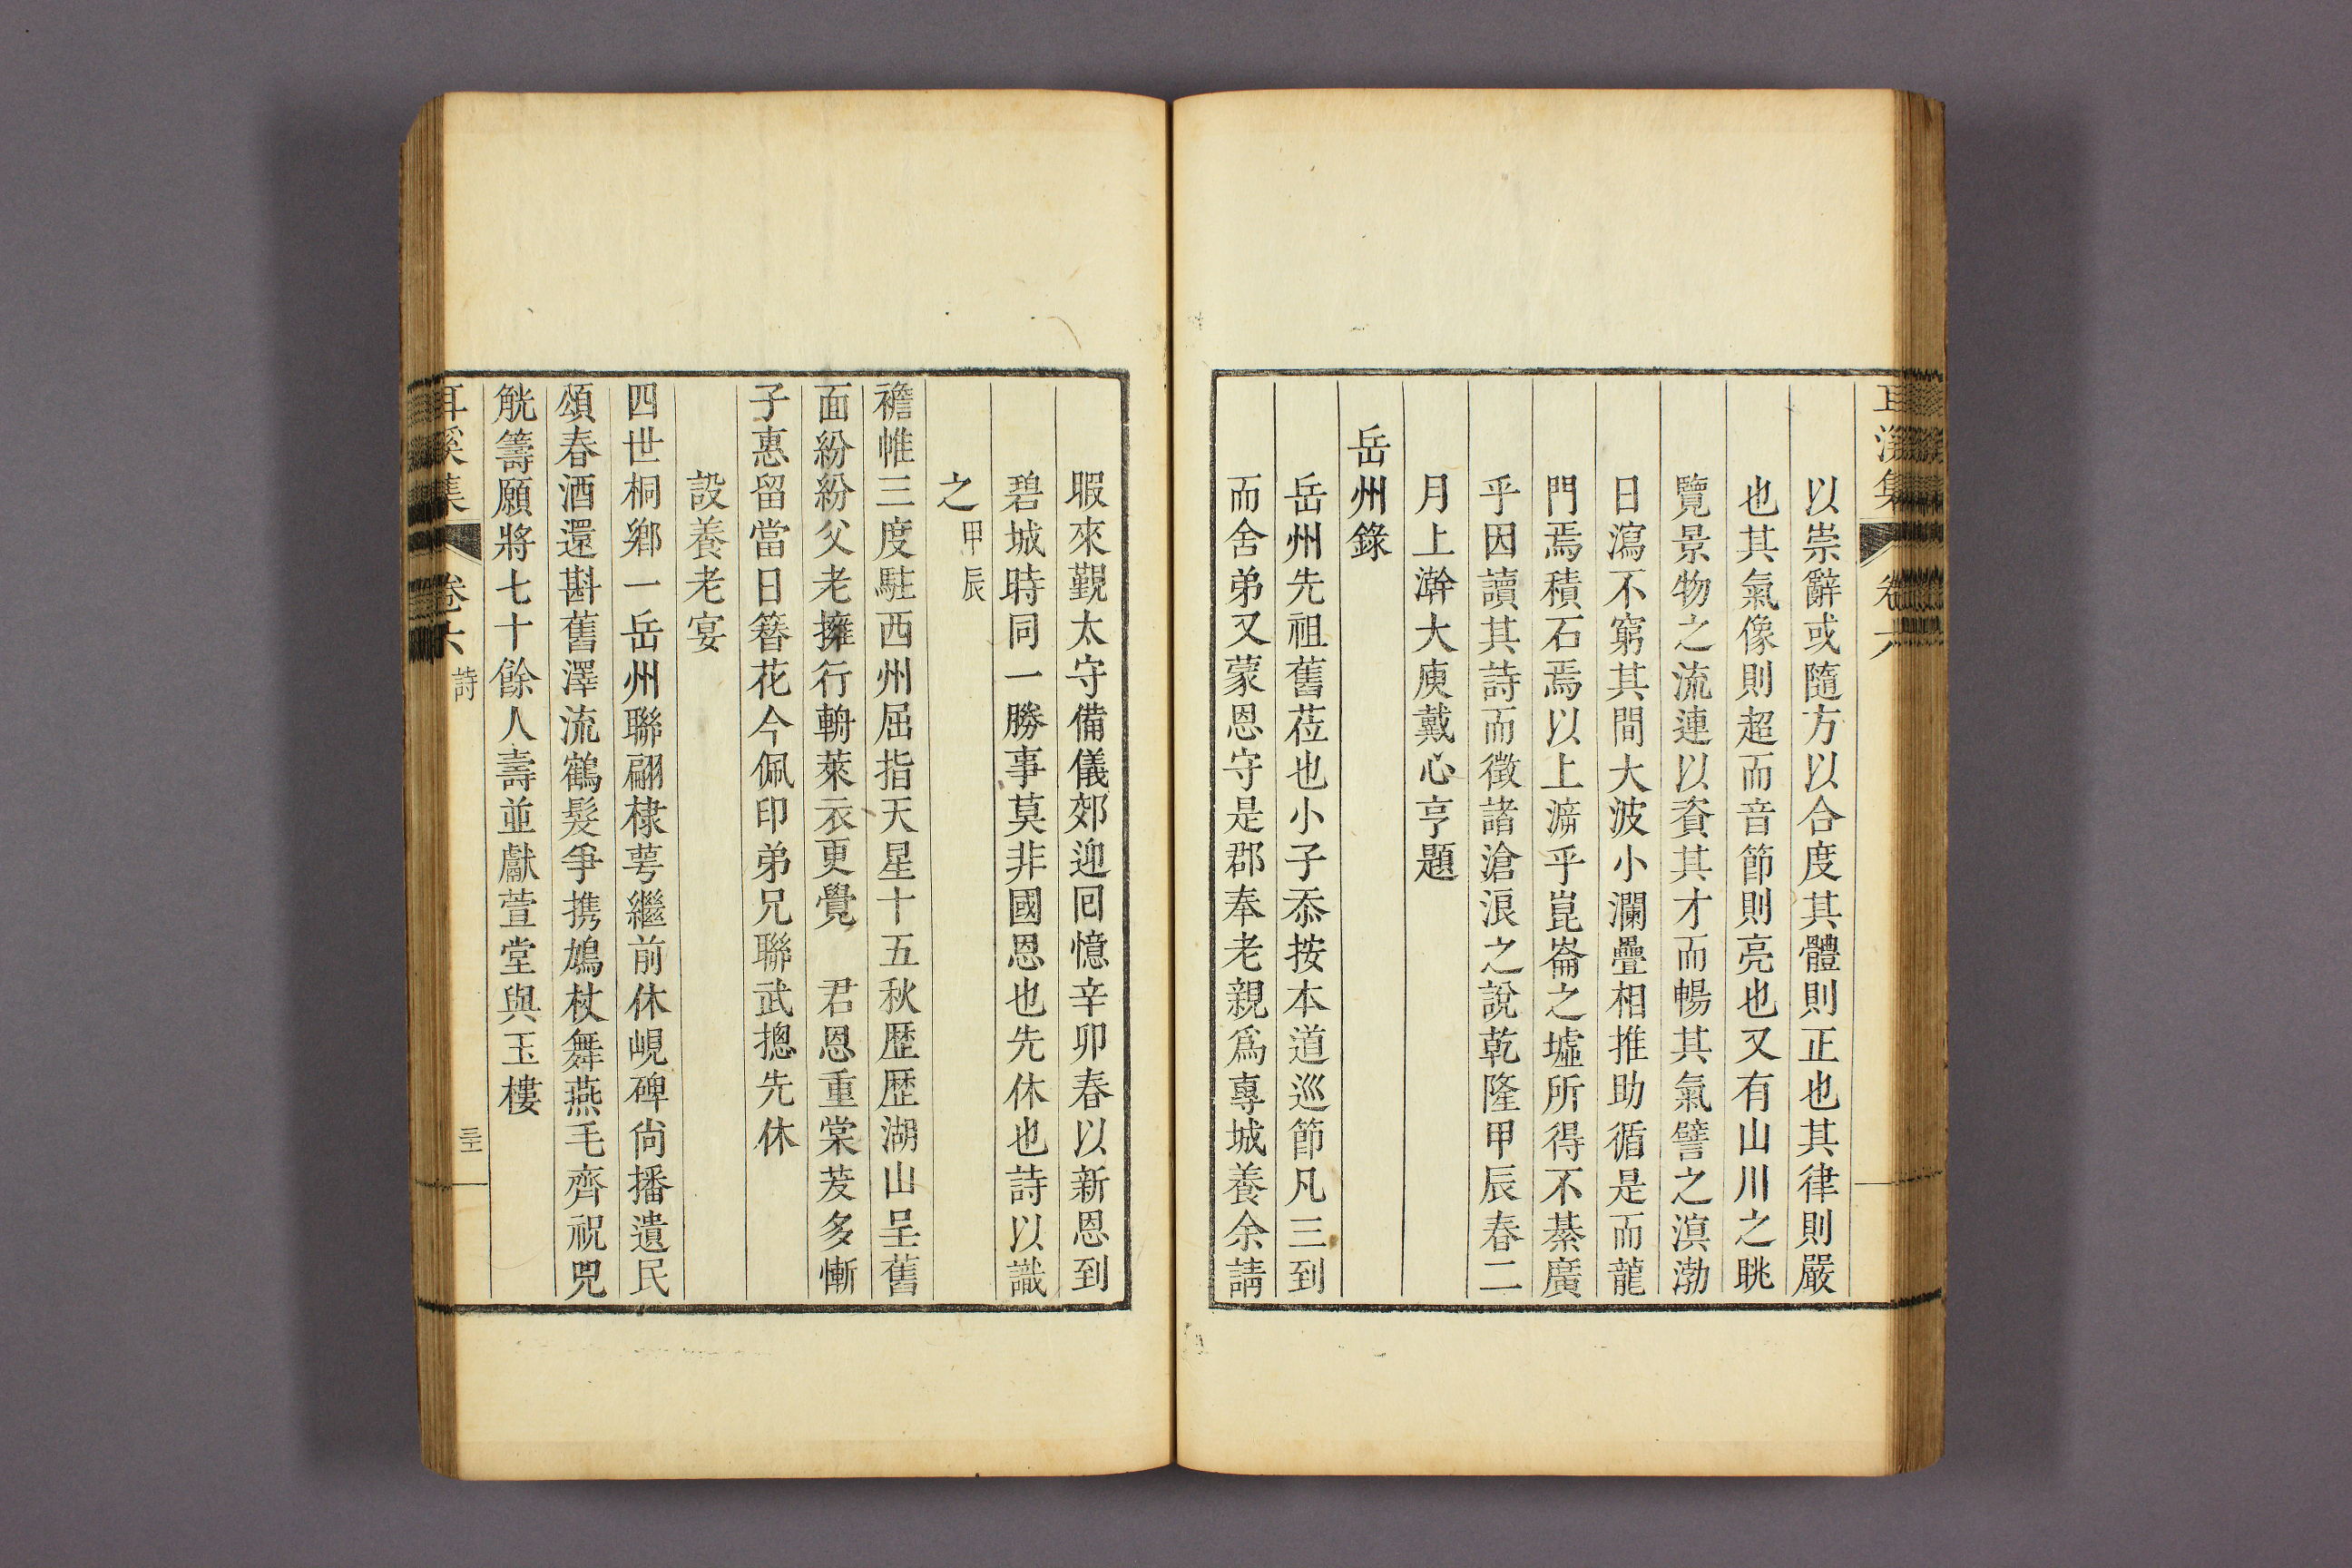 耳溪集 卷六
以崇辭或隨方以合度其體則正也其律則嚴
也其氣像則超而音節則亮也又有山川之眺
覽景物之流連以資其才而暢其氣譬之溟渤
日瀉不窮其間大波小瀾疊相推助循是而龍
門焉積石焉以上泝乎崑崙之墟所得不綦廣
乎因讀其詩而徵諸滄浪之說乾隆甲辰春二
月上澣大庾戴心亨題
岳州錄
岳州先祖舊莅也小子忝按本道巡節凡三到
而舍弟又蒙恩守是郡奉老親爲專城養余請
暇來覲太守備儀郊迎回憶辛卯春以新恩到
碧城時同一勝事莫非國恩也先休也詩以識
之 甲辰
襜帷三度駐西州屈指天星十五秋歷歷湖山呈舊
面紛紛父老擁行輈萊衣更覺 君恩重棠茇多慚
子惠留當日簪花今佩印弟兄聯武摠先休
設養老宴
四世桐鄉一岳州聯翩棣萼繼前休峴碑尙播遺民
頌春酒還斟舊澤流鶴髮爭携鳩杖舞燕毛齊祝兕
觥籌願將七十餘人壽並獻萱堂與玉樓
耳溪集 卷六 詩